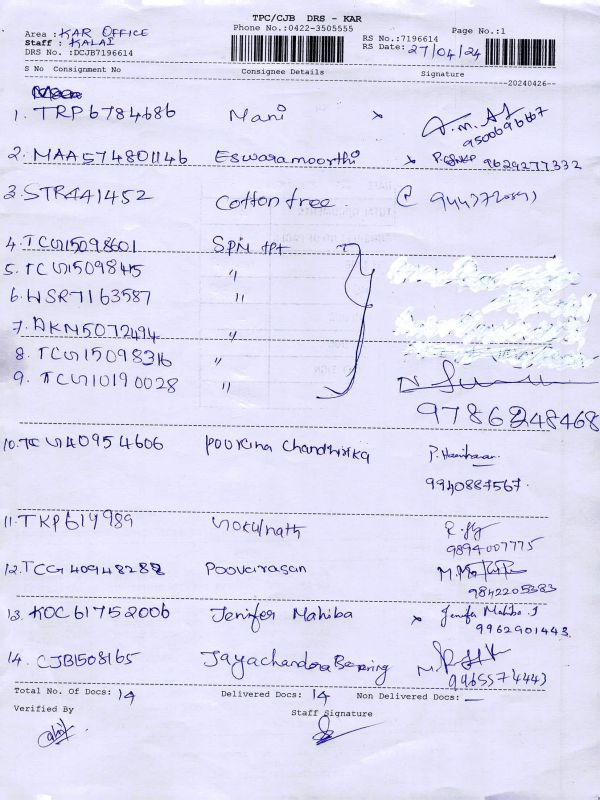 TPC/CJB DRS - KAR
Area : KAR OFFICE Phone No.:0422-3505555 Page No.:1
Staff : KALAI RS No.:7196614
DRS No. :DCJB7196614 RS Date: 27/04/24
S No Consignment No Consignee Details Signature
--20240426--
1. TRP6784686 Mani x
9500696667
2. MAA574801146 Eswaramoorthi x 9629277332
3. STR441452 Cotton tree
4. TCG15098601 Spin tpt
5. TCG15098415 "
6. WSR7163587 "
7. AKM5072494 "
8. TCG15098316 "
9. TCG10190028 "
9786248468
10. TCG40954606 Poorina Chandhirika P. Hariharan
9940887567.
11. TKP614989 Gokulnath
9894007775
12. TCG40948288 Poovarasan
9842205383
13. KOC61752006 Jenifer Mahiba x Jenifer Mahiba. J
9962901443.
14. CJB1508165 Jayachandra Bearing
9965574443
Total No. Of Docs: 14 Delivered Docs: 14 Non Delivered Docs: —
Verified By Staff Signature